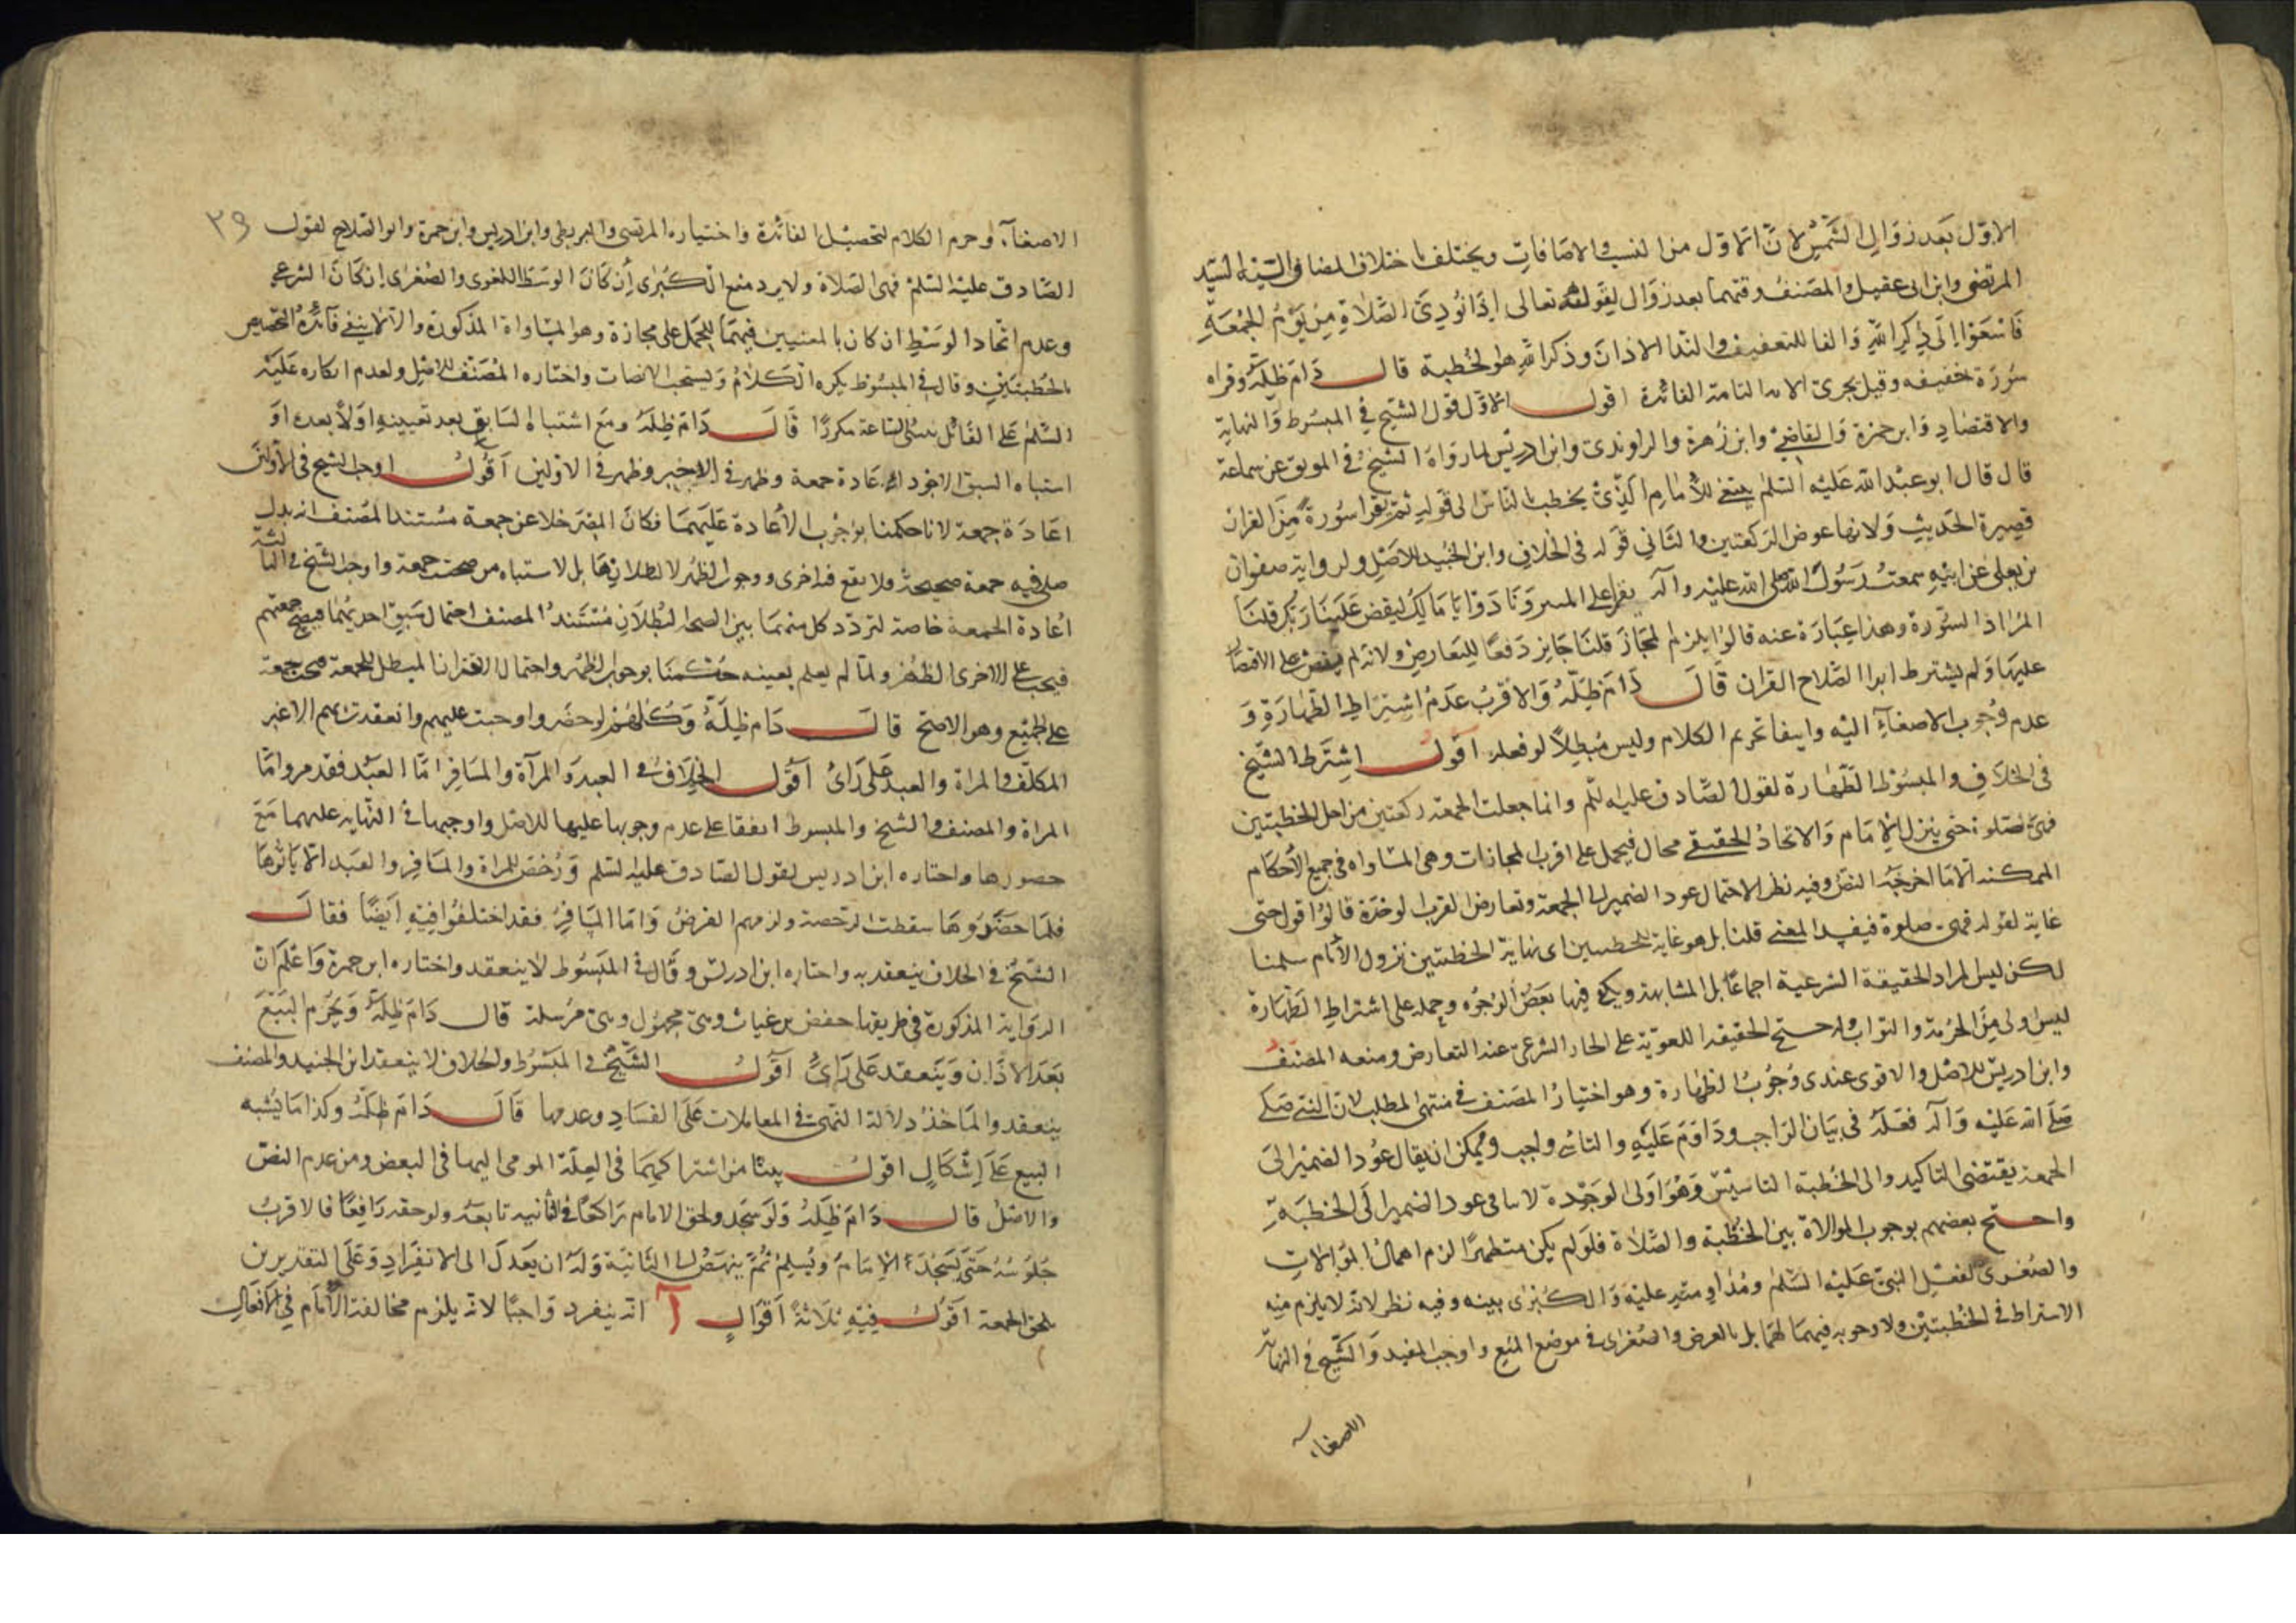 الاول بعد زوال الشمس لان الاول من النسب والاضافات ويختلف باختلاف المضاف اليه السيد
المرتضى وابن ابى عقيل والمصنف وقتهما بعد زوال لقوله تعالى اذا نودى الصلاة من يوم الجمعة
فاسعوا الى ذكر الله والفا للتعقيب والندا الاذان وذكر الله هو الخطبة قال دام ظله وقراه
سورة خفيفه وقيل يجرى الايه التامة الفائدة اقول الاول قول الشيخ في المبسوط والنهاية
والاقتصاد وابن حمزة والقاضى وابن زهرة والراوندى وابن ادريس لما رواه الشيخ في الموثق عن سماعة
قال قال ابو عبد الله عليه السلم ينبغى للامام الذى يخطب بالناس الى قوله ثم يقرا سورة من القران
قصيرة الحديث ولانها عوض الركعتين والثانى قوله في الخلاف وابن الجنيد للاصل ولرواية صفوان
بن يعلى عن ابيه سمعت رسول الله صلى الله عليه واله يقرا على المنبر ونادوا يا مالك ليقض علينا ربك قلنا
المراد السورة وهذا عبارة عنه قالوا يلزم المجاز قلنا جايز دفعا للتعارض ولانه لم ينص على الاقتصار
عليها ولم يشترط ابو الصلاح القران قال دام ظله والاقرب عدم اشتراط الطهارة و
عدم وجوب الاصغاء اليه وانتفا تحريم الكلام وليس مبطلا لو فعله اقول اشترط الشيخ
في الخلاف والمبسوط الطهارة لقول الصادق عليه السلم وانما جعلت الجمعة ركعتين من اجل الخطبتين
فهى صلوة حتى ينزل الامام والاتحاد الحقيقى محال فيحمل على اقرب المجازات وهى المساواه في جميع الاحكام
الممكنه الا ما اخرجه النص وفيه نظر لاحتمال عود الضمير الى الجمعة وتعارض القرب لوحدة قالوا قوله حتى
غاية لقوله فهى صلوة فيفيد المعنى قلنا بل هو غاية للخطبتين اى نهاية الخطبتين نزول الامام سلمنا
لكن ليس المراد الحقيقة الشرعية اجماعا بل المشابهة ويكفى فيها بعض الوجوه وحمله على اشتراط الطهارة
ليس اولى من الحرمة والثواب
وابن ادريس للاصل والاقوى عندى وجوب الطهارة وهو اختيار المصنف في منتهى المطلب لان النبى صلى
صلى الله عليه واله فعله في بيان الواجب وداوم عليه والتاسى واجب ويمكن ان يقال عود الضمير الى
الجمعة يقتضى التاكيد والى الخطبة التاسيس وهو اولى
واحتج بعضهم بوجوب الموالاة بين الخطبة والصلاة فلو لم يكن متطهرا لزم اهمال الموالات
والصغرى لفعل النبى عليه السلم ومداومته عليه والكبرى بينه وفيه نظر لانه لا يلزم منه
الاشتراط في الخطبتين ولا وجوبه فيهما لهما بل بالعرض والصغرى في موضع المنع واوجب المفيد والشيخ في النهاية
الاصغاء
٣٩
الاصغاء وحرم الكلام لتحصيل الفائدة واختياره المرتضى والبزنطى وابن ادريس وابن حمزة وابو الصلاح لقول
الصادق عليه السلم فهى الصلاة ولا يرد منع الكبرى ان كان الوسط اللغوى والصغرى ان كان الشرعى
وعدم اتحاد الوسط ان كان بالمعنيين فيهما للحمل على مجازة وهو المساواة المذكورة والا لانتفى فائدة التخصيص
بالخطبتين وقال في المبسوط يكره الكلام ويستحب الانصات واختاره المصنف للاصل ولعدم انكاره عليه
السلم على القائل متى الساعة مكررا قال دام ظله ومع اشتباه السابق بعد تعيينه اولا بعده او
اشتباه السبق الاجود اعادة جمعة وظهر في الاخير وظهر في الاولين اقول اوجب الشيخ في الاولين
اعادة جمعة لانا حكمنا بوجوب الاعادة عليهما فكان المصر خلا عن جمعة مستند المصنف انه بدل
صلى فيه جمعة صحيحة ولا يقع فيه اخرى ووجوب الظهر لا لبطلانها بل لاشتباه من صحت جمعة واوجب الشيخ في الثالثة
اعادة الجمعة خاصة لتردد كل منهما بين الصحة والبطلان مستند المصنف احتمال سبق احديهما فيصح جمعتهم
فيجب على الاخرى الظهر ولما لم يعلم بعينه حكمنا بوجوب الظهر واحتمال الاقتران المبطل للجمعة فيجب جمعة
على الجميع وهو الاصح قال دام ظله وكلهم لو حضروا وجبت عليهم وانعقدت بهم الا غير
المكلف والمراة والعبد على راى اقول الخلاف في العبد والمرآة والمسافر اما العبد فقد مر واما
المراة والمصنف والشيخ والمبسوط اتفقا على عدم وجوبها عليها للاصل واوجبها في النهايه عليهما مع
حضورها واختاره ابن ادريس لقول الصادق عليه السلم ورخص للمراة والمسافر والعبد الا ياتوها
فلما حضروها سقطت الرخصة ولزمهم الفرض واما المسافر فقد اختلفوا فيه ايضا فقال
الشيخ في الخلاف ينعقد به واختاره ابن ادريس وقال في المبسوط لا ينعقد واختاره ابن حمزة واعلم ان
الرواية المذكورة في طريقها حفص بن غياث وهى مجهول وهى مرسلة قال دام ظله ويحرم البيع
بعد الاذان وينعقد على راى اقول الشيخ في المبسوط والخلاف لا ينعقد ابن الجنيد والمصنف
ينعقد والماخذ دلالة النهى في المعاملات على الفساد وعدمها قال دام ظله وكذا ما يشبه
البيع على اشكال اقول ينشا من اشتراكهما في العلة المومى اليها في البعض ومن عدم النص
والاصل قال دام ظله ولو سجد ولحق الامام راكعا في الثانيه تابعه ولو لحقه رافعا فالاقرب
جلوسه حتى يسجد الامام ويسلم ثم ينهض الى الثانية وله ان يعدل الى الانفراد وعلى التقديرين
يلحق الجمعة اقول فيه ثلاثة اقوال آ انه ينفرد واجبا لانه يلزم مخالفة الامام في الافعال